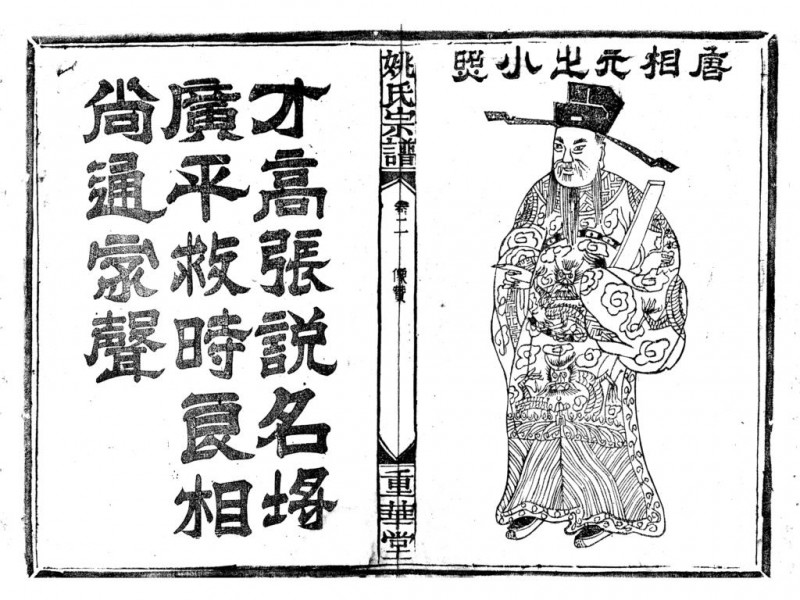 唐相元之小照
姚氏宗譜
卷二
像贊
重華堂
才高張說名埒
廣平救時良相
尚通家聲